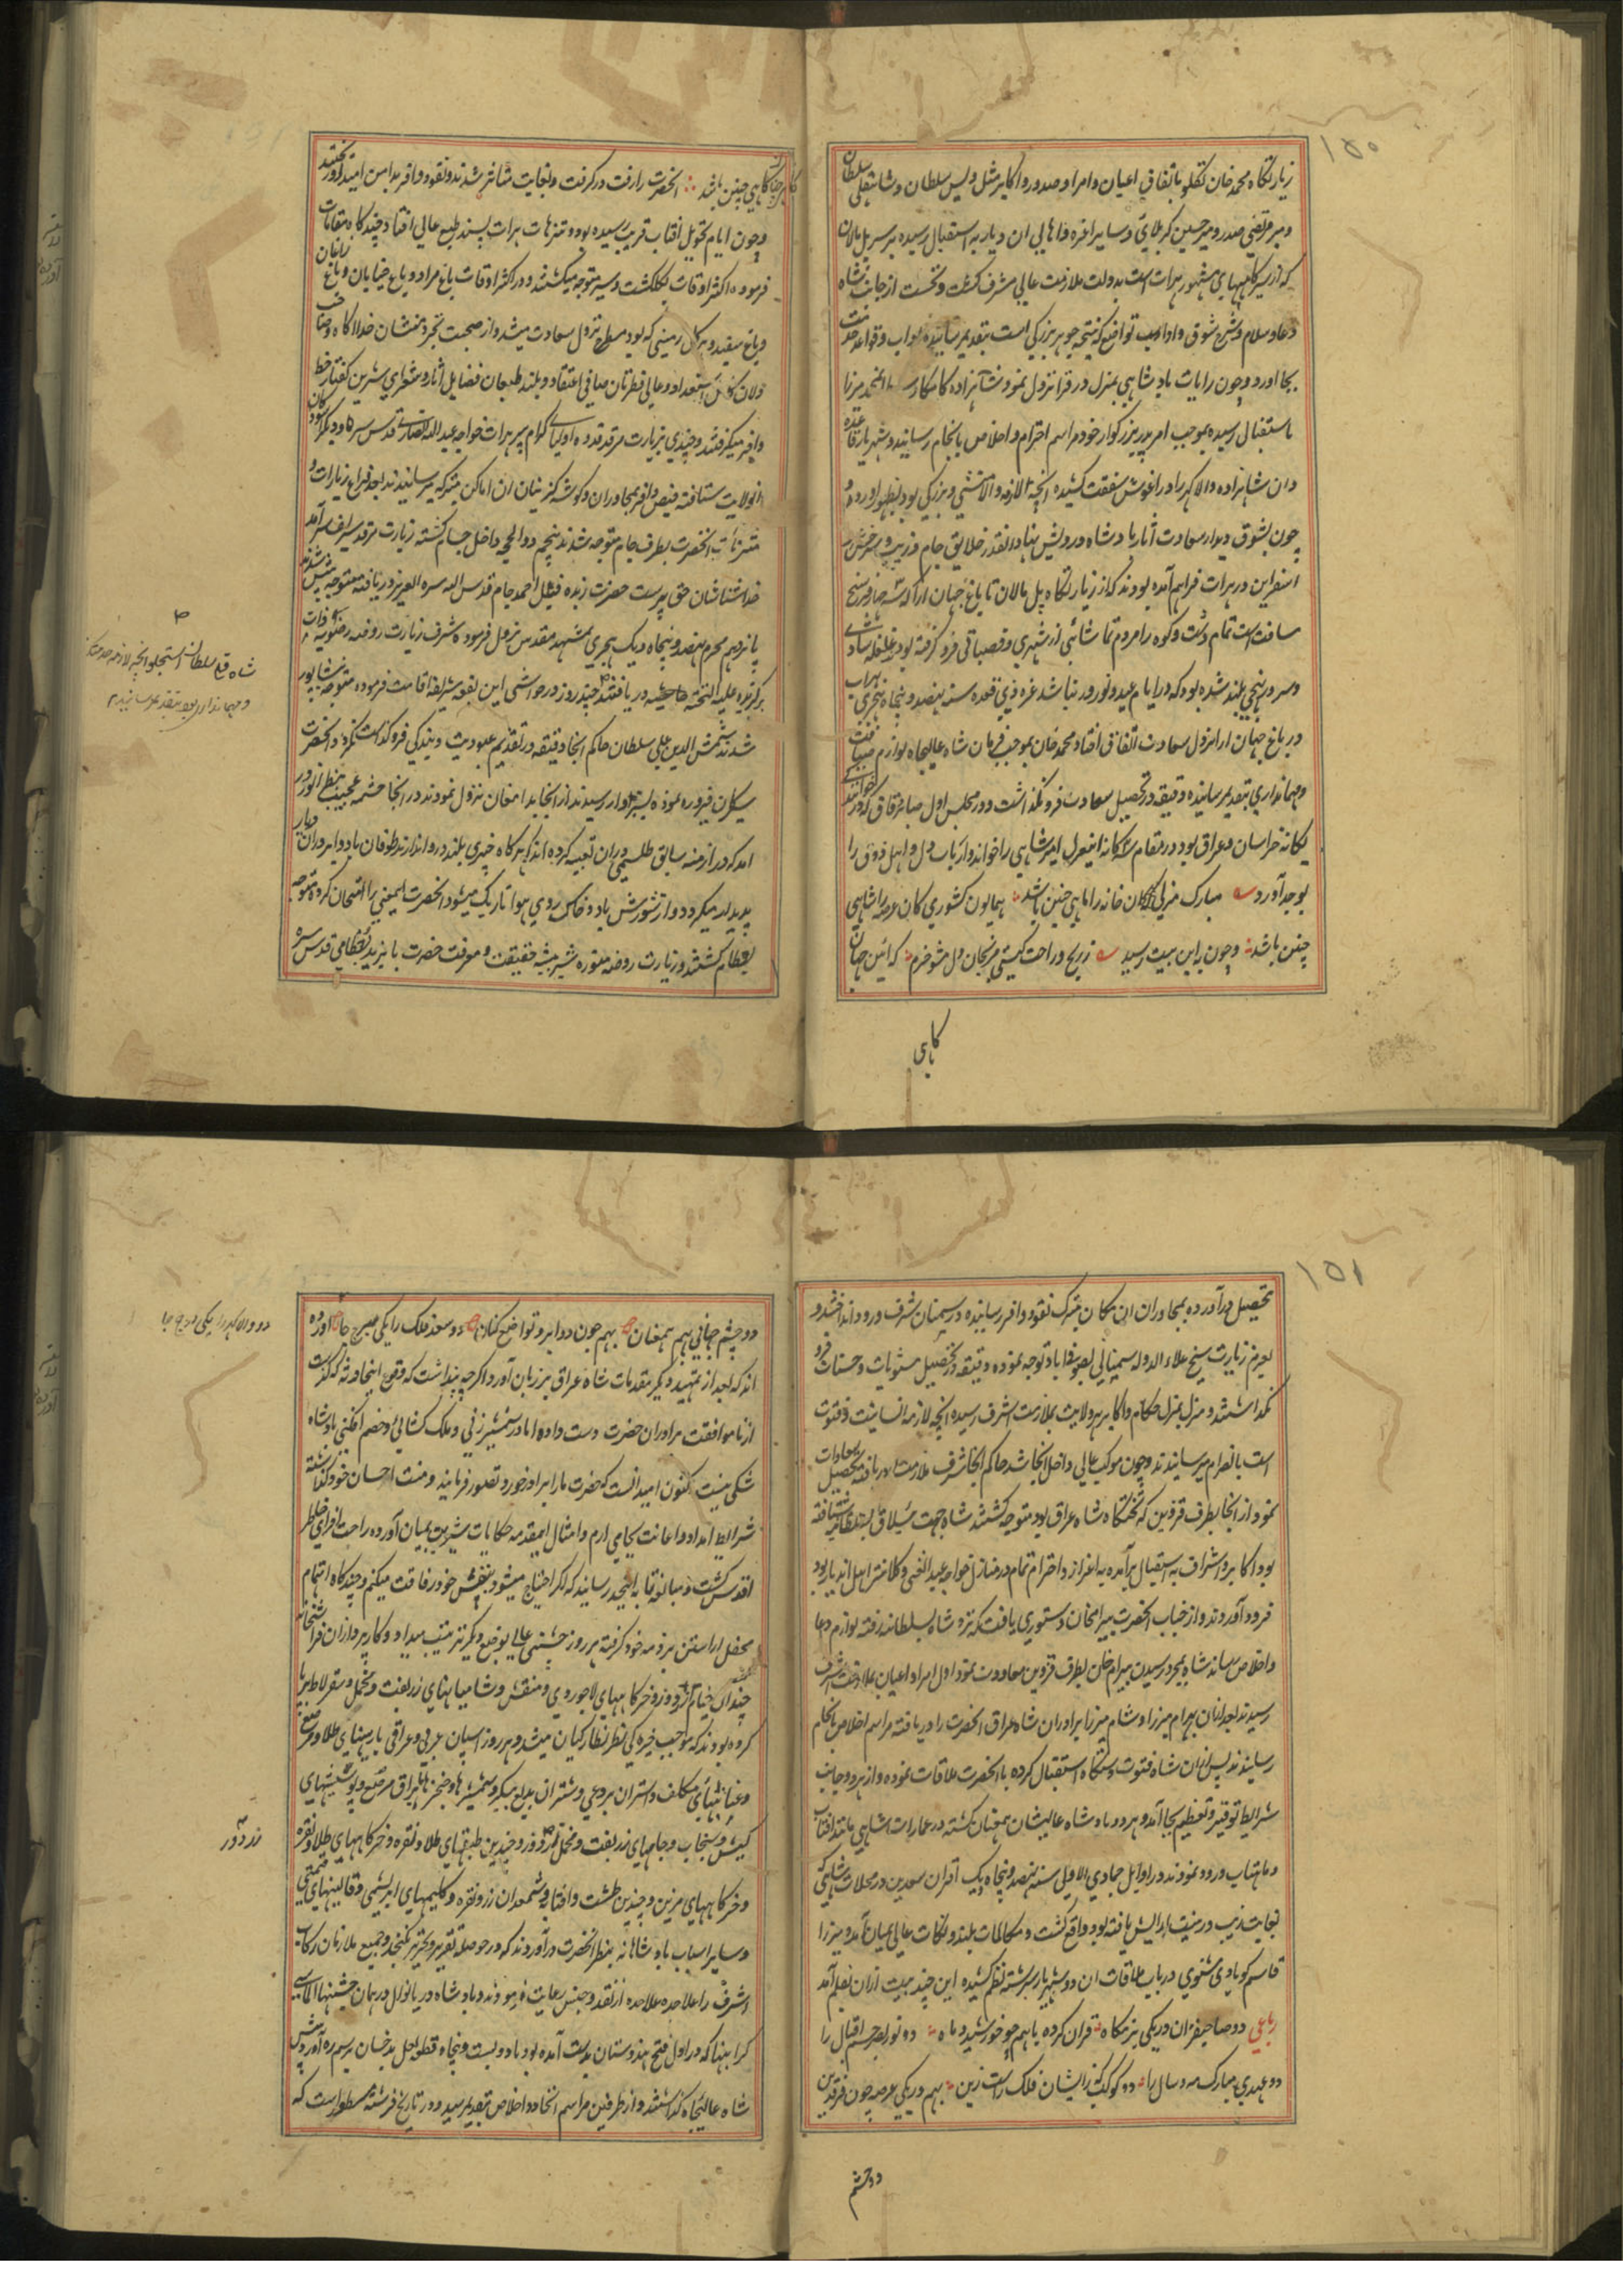 ۱۵۰
زیارتگاه محمد خان تکلو باتفاق اعیان و امرا و صدور و اکابر مثل ویس سلطان و شاهقلی سلطان
و میر مرتضی صدر و میر حسین کربلائی و سایر اعزه و اهالی ان دیار به استقبال رسیده بر سر پل مالان
که از سیرگاههای مشهور هرات است بدولت ملازمت عالی مشرف گشت و نخست از جانب شاه
دعا و سلام و شرح شوق و اداب تواضع که نتیجه جوهر بزرگی است بتقدیم رسانیده اداب و قواعد خدمت
بجا اورد و چون رایات پادشاهی بمنزل در قرا نزول نمود شاهزاده کامکار سلطان محمد مرزا
باستقبال رسیده بموجب امر پدر بزرگوار خود مراسم احترام و اخلاص بانجام رسانید و شهریار قاعده
دان شاهزاده والا گهر را در اغوش شفقت کشیده انچه لازمه والا منشی و بزرگی بود بظهور اورده و
چون بشوق دیدار سعادت آثار پادشاه درویش نهاد انقدر خلایق جام و تربت و سرخس و
اسفراین در هرات فراهم آمده بودند که از زیارتگاه پل مالان تا باغ جهان ارا که سه چهار فرسخ
مسافت است تمام دشت و کوه را مردم تماشائی از شهری و قصباتی فرو گرفته بود و غلغله شادی
و سرور بنهجی بلند شده بود که در ایام عید و نوروز نباشد غره ذی قعده سنه نهصد و پنجاه هجری بهرات
در باغ جهان ارا نزول سعادت اتفاق افتاد محمد خان بموجب فرمان شاه عالیجاه لوازم ضیافت
و مهمانداری بتقدیم رسانیده دقیقه در تحصیل سعادت فرو نگذاشت و در مجلس اول صابر قاق که در خوانندگی
یگانه خراسان و عراق بود در مقام سه گانه این غزل امیر شاهی را خواند و ارباب دل و اهل ذوق را
بوجد آورد مبارک منزلی کان خانه را ماهی چنین باشد همایون کشوری کان عرصه را شاهی
چنین باشد و چون باین بیت رسید ز رنج و راحت گیتی مرنجان دل مشو خرم که آئین جهان
کاهی
گاهی چنان گاهی چنین باشد انحضرت را رقت در گرفت و بغایت متاثر شدند و نقود وافر بدامن امید او ریختند
و چون ایام تحویل افتاب قریب رسیده بود و متنزهات هرات پسند طبع عالی افتاد چندگاه مقامات
فرموده اکثر اوقات بگلگشت و سیر متوجه میگشتند و در اکثر اوقات باغ مراد و باغ خیابان و باغ زاغان
و باغ سفید و هر گل زمینی که بود مسطح نزول سعادت میشد و از صحبت تجرد منشان خدا اگاه و صاحب
دلان کامل استعداد و عالی فطرتان صافی اعتقاد و بلند طبعان فضایل اثار و شعرای شیرین گفتار حظ
وافر میگرفتند و چندی بزیارت مرقد قدوه اولیای کرام پیر هرات خواجه عبد الله انصاری قدس سره و دیگر اسودگان
انولایت شتافته فیض وافر بمجاوران و گوشه گزینان ان اماکن متبرکه میرسانیدند بعد فراغ زیارات و
متنزهات انحضرت بطرف جام متوجه شدند پنجم ذوالحجه داخل جام گشته زیارت مرقد سرآمد
خداشناسان حق پرست حضرت زنده فیل احمد جام قدس الله سره العزیز دریافته متوجه پیش شدند
پانزدهم محرم نهصد و پنجاه و یک هجری بمشهد مقدس نزول فرموده شرف زیارت روضه رضویه
برگزیده علیه التحیه دریافتند چند روز در حواشی این بقعه شریفه اقامت فرموده متوجه نیشاپور
شدند شمس الدین علی سلطان حاکم انجا دقیقه در تقدیم عبودیت و بندگی فرو گذاشت نکرد و انحضرت
سیر کان فیروزه نموده بسبزوار رسیدند از انجا بدامغان نزول نمودند در انجا چشمه عجیب بنظر انور در
امد که در ازمنه سابق طلسمی دران تعبیه کرده اند که هرگاه چیزی پلید درو اندازند طوفان باد و ابر دران دیار
پدید میگردد و از شورش باد و خاک روی هوا تاریک میشود انحضرت اینمعنی را امتحان کرده متوجه
بسطام گشتند و زیارت روضه منوره شیر بیشه حقیقت و معرفت حضرت بایزید بسطامی قدس سره
شاه قلی سلطان استجلو انچه لازمه خدمتکاری
و مهمانداری بود بتقدیم رسانید
۱۵۱
تحصیل در آورده بمجاوران ان مکان متبرک نقود وافر رسانیده در سمنان شرف ورود انداختند و
بعزم زیارت شیخ علاء الدوله سمنانی بصوفی اباد توجه نموده دقیقه در تحصیل مثوبات و حسنات فرو
نگذاشتند و منزل بمنزل حکام و اکابر هر ولایت بملازمت اشرف رسیده انچه لازمه انسانیت و فتوت
است بانصرام میرسانیدند و چون موکب عالی داخل انجا شد حاکم انجا شرف ملازمت دریافته تحصیل سعادات
نمود از انجا بطرف قزوین که تختگاه شاه عراق بود متوجه گشتند شاه بجهت ییلاق بسلطانیه شتافته
بود اکابر و اشراف به استقبال برآمده به اعزاز و احترام تمام در منازل خواجه عبد الغنی و کلانتر اهل اندیار بود
فرود آوردند و از جناب انحضرت بیرامخان دستوری یافت که نزد شاه بسلطانیه رفته لوازم دعا
و اخلاص رساند شاه بمجرد رسیدن بیرام خان بطرف قزوین معاودت نمود اول امرا و اعیان بملازمت اشرف
رسیدند بعد ازان بهرام میرزا و سام میرزا برادران شاه عراق انحضرت را دریافته مراسم اخلاص بانجام
رسانیدند پس ازان شاه فتوت دستگاه استقبال کرده با انحضرت ملاقات نموده و از هر دو جانب
شرایط توقیر و تعظیم بجا آمد و هر دو پادشاه عالیشان همعنان گشته در عمارات شاهی مانند افتاب
و ماهتاب ورود نمودند در اوایل جمادی الاول سنه نهصد و پنجاه و یک اقران سعدین در محلات شاهی که
بغایت زیب و زینت ارایش یافته بود واقع گشت و مکالمات بلند و نکات عالی بمیان آمد و میرزا
قاسم گونابادی مثنوی در باب ملاقات ان دو شهریار برشته نظم کشیده این چند بیت ازان بقلم آمد
رباعی دو صاحبقران در یکی بزمگاه قران کرده باهم چو خورشید و ماه دو نور بصر چشم اقبال را
دو عید مبارک مه و سال را دو کوکب کزایشان فلک راست زین بهم در یکی عرصه چون فرقدین
دو چشم
دو چشم جهانی بهم همعنان بهم چون دو ابرو تواضع کنان دو سعد فلک را یکی برج جا آورده
اند که بعد از تمهید دیگر مقدمات شاه عراق بر زبان آورد اگرچه پنداشت که وقوع اینحادثه که گذشت
از ناموافقت برادران حضرت دست داده اما در شمشیر زنی و ملک کشائی و خصم افکنی پادشاه
شکی نیست کنون امید انست که حضرت ما را برادر خورد تصور فرمایند و منت احسان خود گذاشته
شرایط امداد و اعانت بجا می ارم و امثال اینمقدمه حکایات شیرین بمیان آورده راحت افزای خاطر
اقدس گشت و مبالغه تا به اینحد رسانید که اگر احتیاج میشود بنفس خود رفاقت میکنم و چندگاه اهتمام
محفل اراستن بر ذمه خود گرفته هر روز جشنی عالی بوضع دیگر ترتیب میداد و کارپردازان فراشخانه
چندان خیام زردوز و خرگاههای لاجوردی و منقش و شامیانهای زربفت و مخمل و سقرلاط برپا
کرده بودند که موجب خیرگی نظر نظارگیان میشد و هر روز اسپان عربی و عراقی با زینهای طلا و مرصع
و عنانهای مکلف و استران بردعی و شتران بدیع پیکر و شمشیرها و خنجرها یراق مرصع و پوستینهای
کیش و سنجاب و جامهای زربفت و مخمل زردوز و چندین طبقهای طلا و نقره و خرگاههای طلا و نقره
و خرگاههای مزین و چندین طشت و افتابه و شمعدان زر و نقره و گلیمهای ابریشمی و قالینهای قیمتی
و سایر اسباب پادشاهانه بنظر انحضرت درآوردند که در حوصله تقریر و تحریر نگنجد و جمیع ملازمان رکاب
اشرف را علاحده علاحده از نقد و جنس رعایت فرمودند و پادشاه دریا نوال در همان جشنها الماسی
گرانبها که در اول فتح هندوستان بدست آمده بود با دویست و پنجاه قطعه لعل بدخشان برسم ره آورد پیش
شاه عالیجاه گذاشتند و از طرفین مراسم اتحاد و اخلاص بتقدیم رسید و در تاریخ فرشته مسطور است که
دو والا گهر را یکی درج جا
زردوز